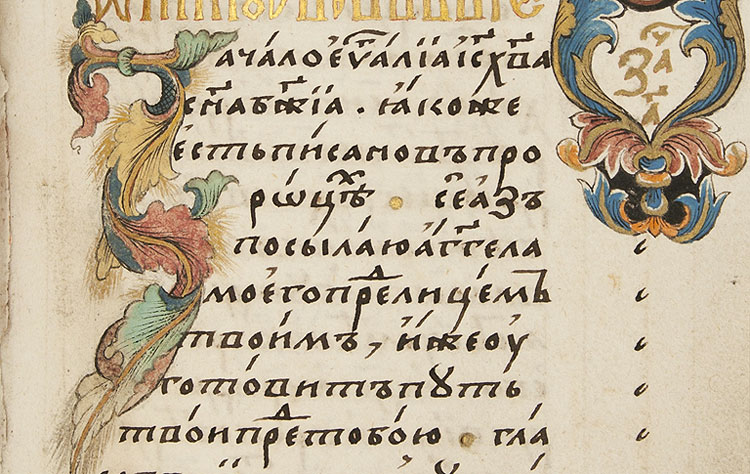 Зача́ло
ачалоеѵⷢ҇алїаіс҃хв҃а
сн҃абж҃їа · ꙗ҆коже
естьписановъпро
рѡцѣⷯ · сеазъ
посылаюаг҃гела
моегопреⷣлицемъ
твоимъ, ижеоу
готовитъпꙋть
твоипреⷣтобою · гла